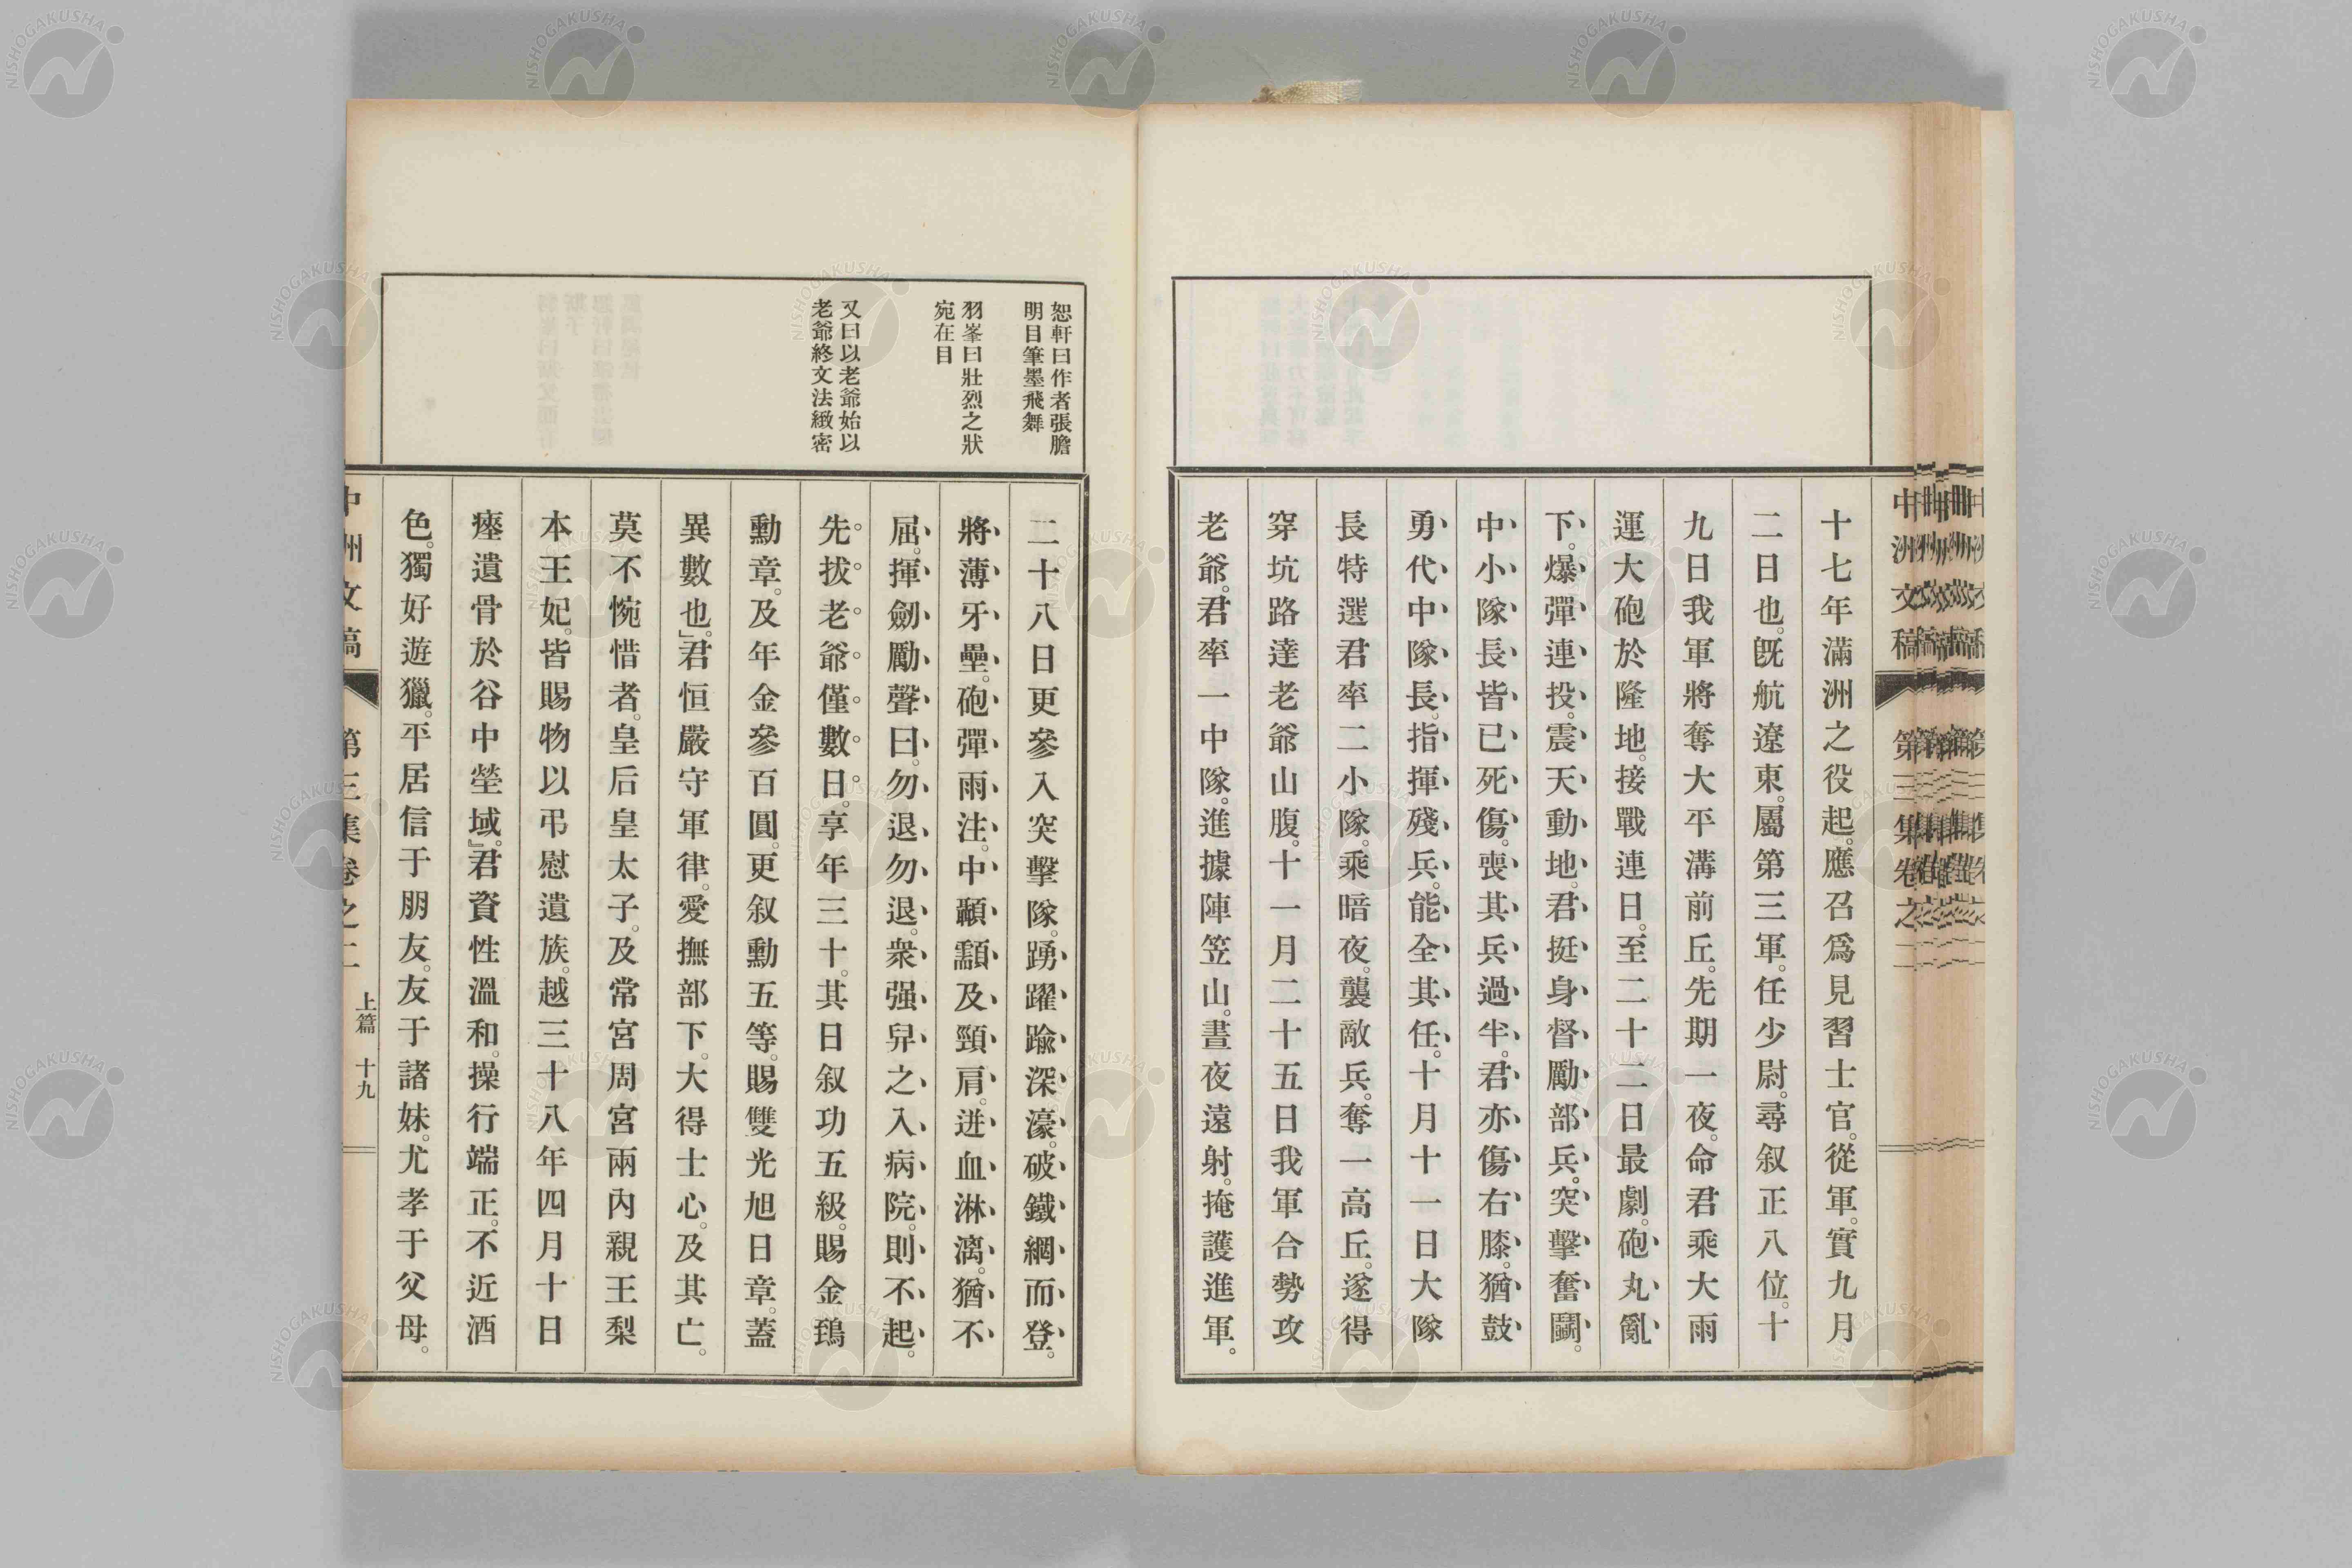 中洲文稿 第三集卷之二
十七年滿洲之役起。應召爲見習士官。從軍。實九月
二日也。旣航遼東。屬第三軍。任少尉。尋叙正八位。十
九日我軍將奪大平溝前丘。先期一夜。命君乘大雨
運大砲於隆地。接戰連日。至二十二日最劇。砲丸亂
下。爆彈連投。震天動地。君挺身督勵部兵。突擊奮鬭。
中小隊長皆已死傷。喪其兵過半。君亦傷右膝。猶鼓
勇代中隊長。指揮殘兵。能全其任。十月十一日大隊
長特選君率二小隊。乘暗夜。襲敵兵。奪一高丘。遂得
穿坑路達老爺山腹。十一月二十五日我軍合勢攻
老爺。君率一中隊。進據陣笠山。晝夜遠射。掩護進軍。
恕軒曰作者張膽
明目筆墨飛舞
羽峯曰壯烈之狀
宛在目
又曰以老爺始以
老爺終文法緻密
二十八日更參入突擊隊。踴躍踰深濠。破鐵網而登。
將薄牙壘。砲彈雨注。中顳顬及頸肩。迸血淋漓。猶不
屈。揮劒勵聲曰。勿退勿退。衆强舁之入病院。則不起。
先拔老爺僅數日。享年三十。其日叙功五級。賜金鵄
勳章。及年金參百圓。更叙勳五等。賜雙光旭日章。蓋
異數也。」君恒嚴守軍律。愛撫部下。大得士心。及其亡。
莫不惋惜者。皇后皇太子。及常宮周宮兩內親王梨
本王妃。皆賜物以弔慰遺族。越三十八年四月十日
瘞遺骨於谷中塋域。』君資性溫和。操行端正。不近酒
色。獨好遊獵。平居信于朋友。友于諸妹。尤孝于父母。
中洲文稿 第三集卷之二 上篇 十九
NISHOGAKUSHA